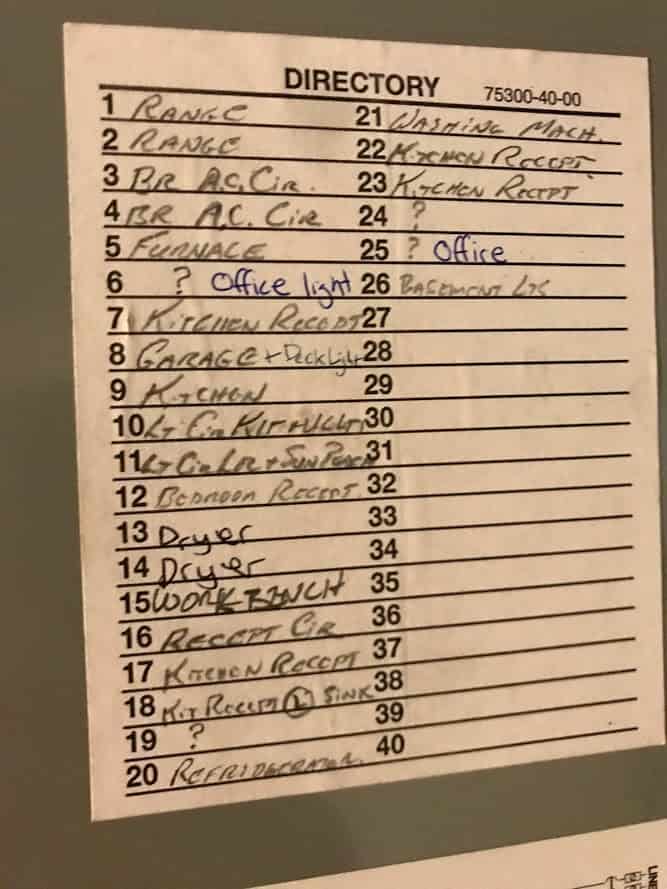 DIRECTORY 75300-40-00
1 RANGE
2 RANGE
3 BR A.C. CIR.
4 BR A.C. CIR
5 FURNACE
6 ? Office light
7 KITCHEN RECEPT
8 GARAGE + Deck Light
9 KITCHEN
10 LT CIR KIT +
11 LT CIR LR + SUN PORCH
12 BEDROOM RECEPT.
13 Dryer
14 Dryer
15 WORK BENCH
16 RECEPT CIR
17 KITCHEN RECEPT
18 KIT RECEPT L SINK
19 ?
20 REFRIDGERATOR.
21 WASHING MACH.
22 KITCHEN RECEPT.
23 KITCHEN RECEPT
24 ?
25 ? Office
26 BASEMENT LTS
27
28
29
30
31
32
33
34
35
36
37
38
39
40